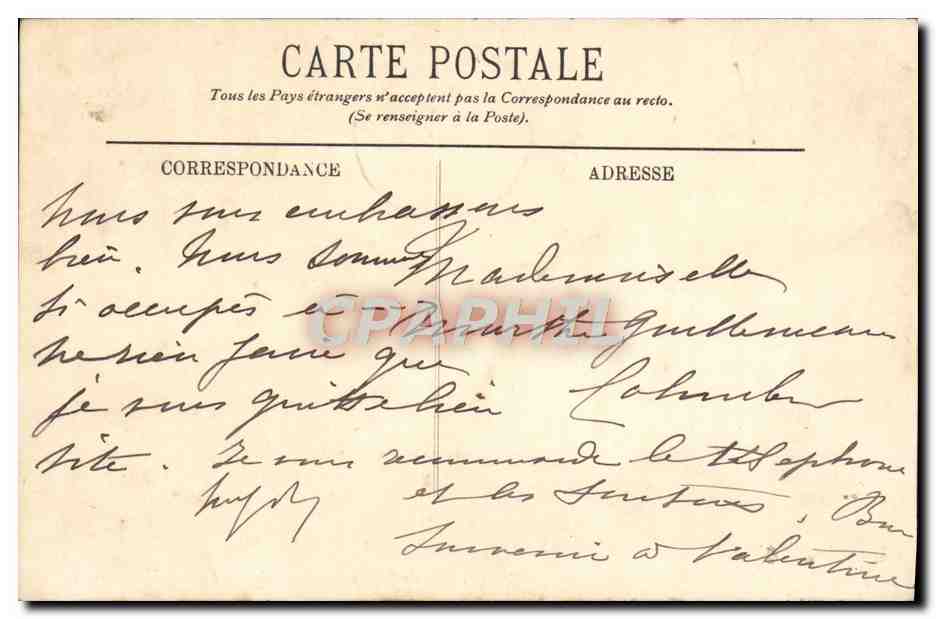 CARTE POSTALE
Tous les Pays étrangers n'acceptent pas la Correspondance au recto.
(Se renseigner à la Poste).
CORRESPONDANCE
ADRESSE
Nous vous embrassons
bien. Nous sommes
si occupés à
ne rien faire que
je vous quitte bien
vite. Je vous recommande le téléphone
et les
Bon
souvenir à Valentine
Mademoiselle
Marthe Guillemeau
CPAPHIL